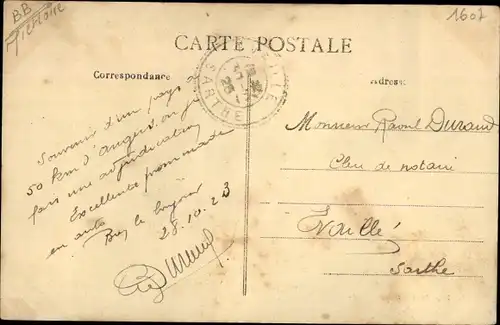 BB
Militaire
1607
CARTE POSTALE
Correspondance
Adresse
SARTHE
Souvenir d'un pays à
50 km d'Angers où je
fais une adjudication
Excellente promenade
en auto.
28.10.23
Monsieur Raoul Durand
Clerc de notaire
Noullé
Sarthe